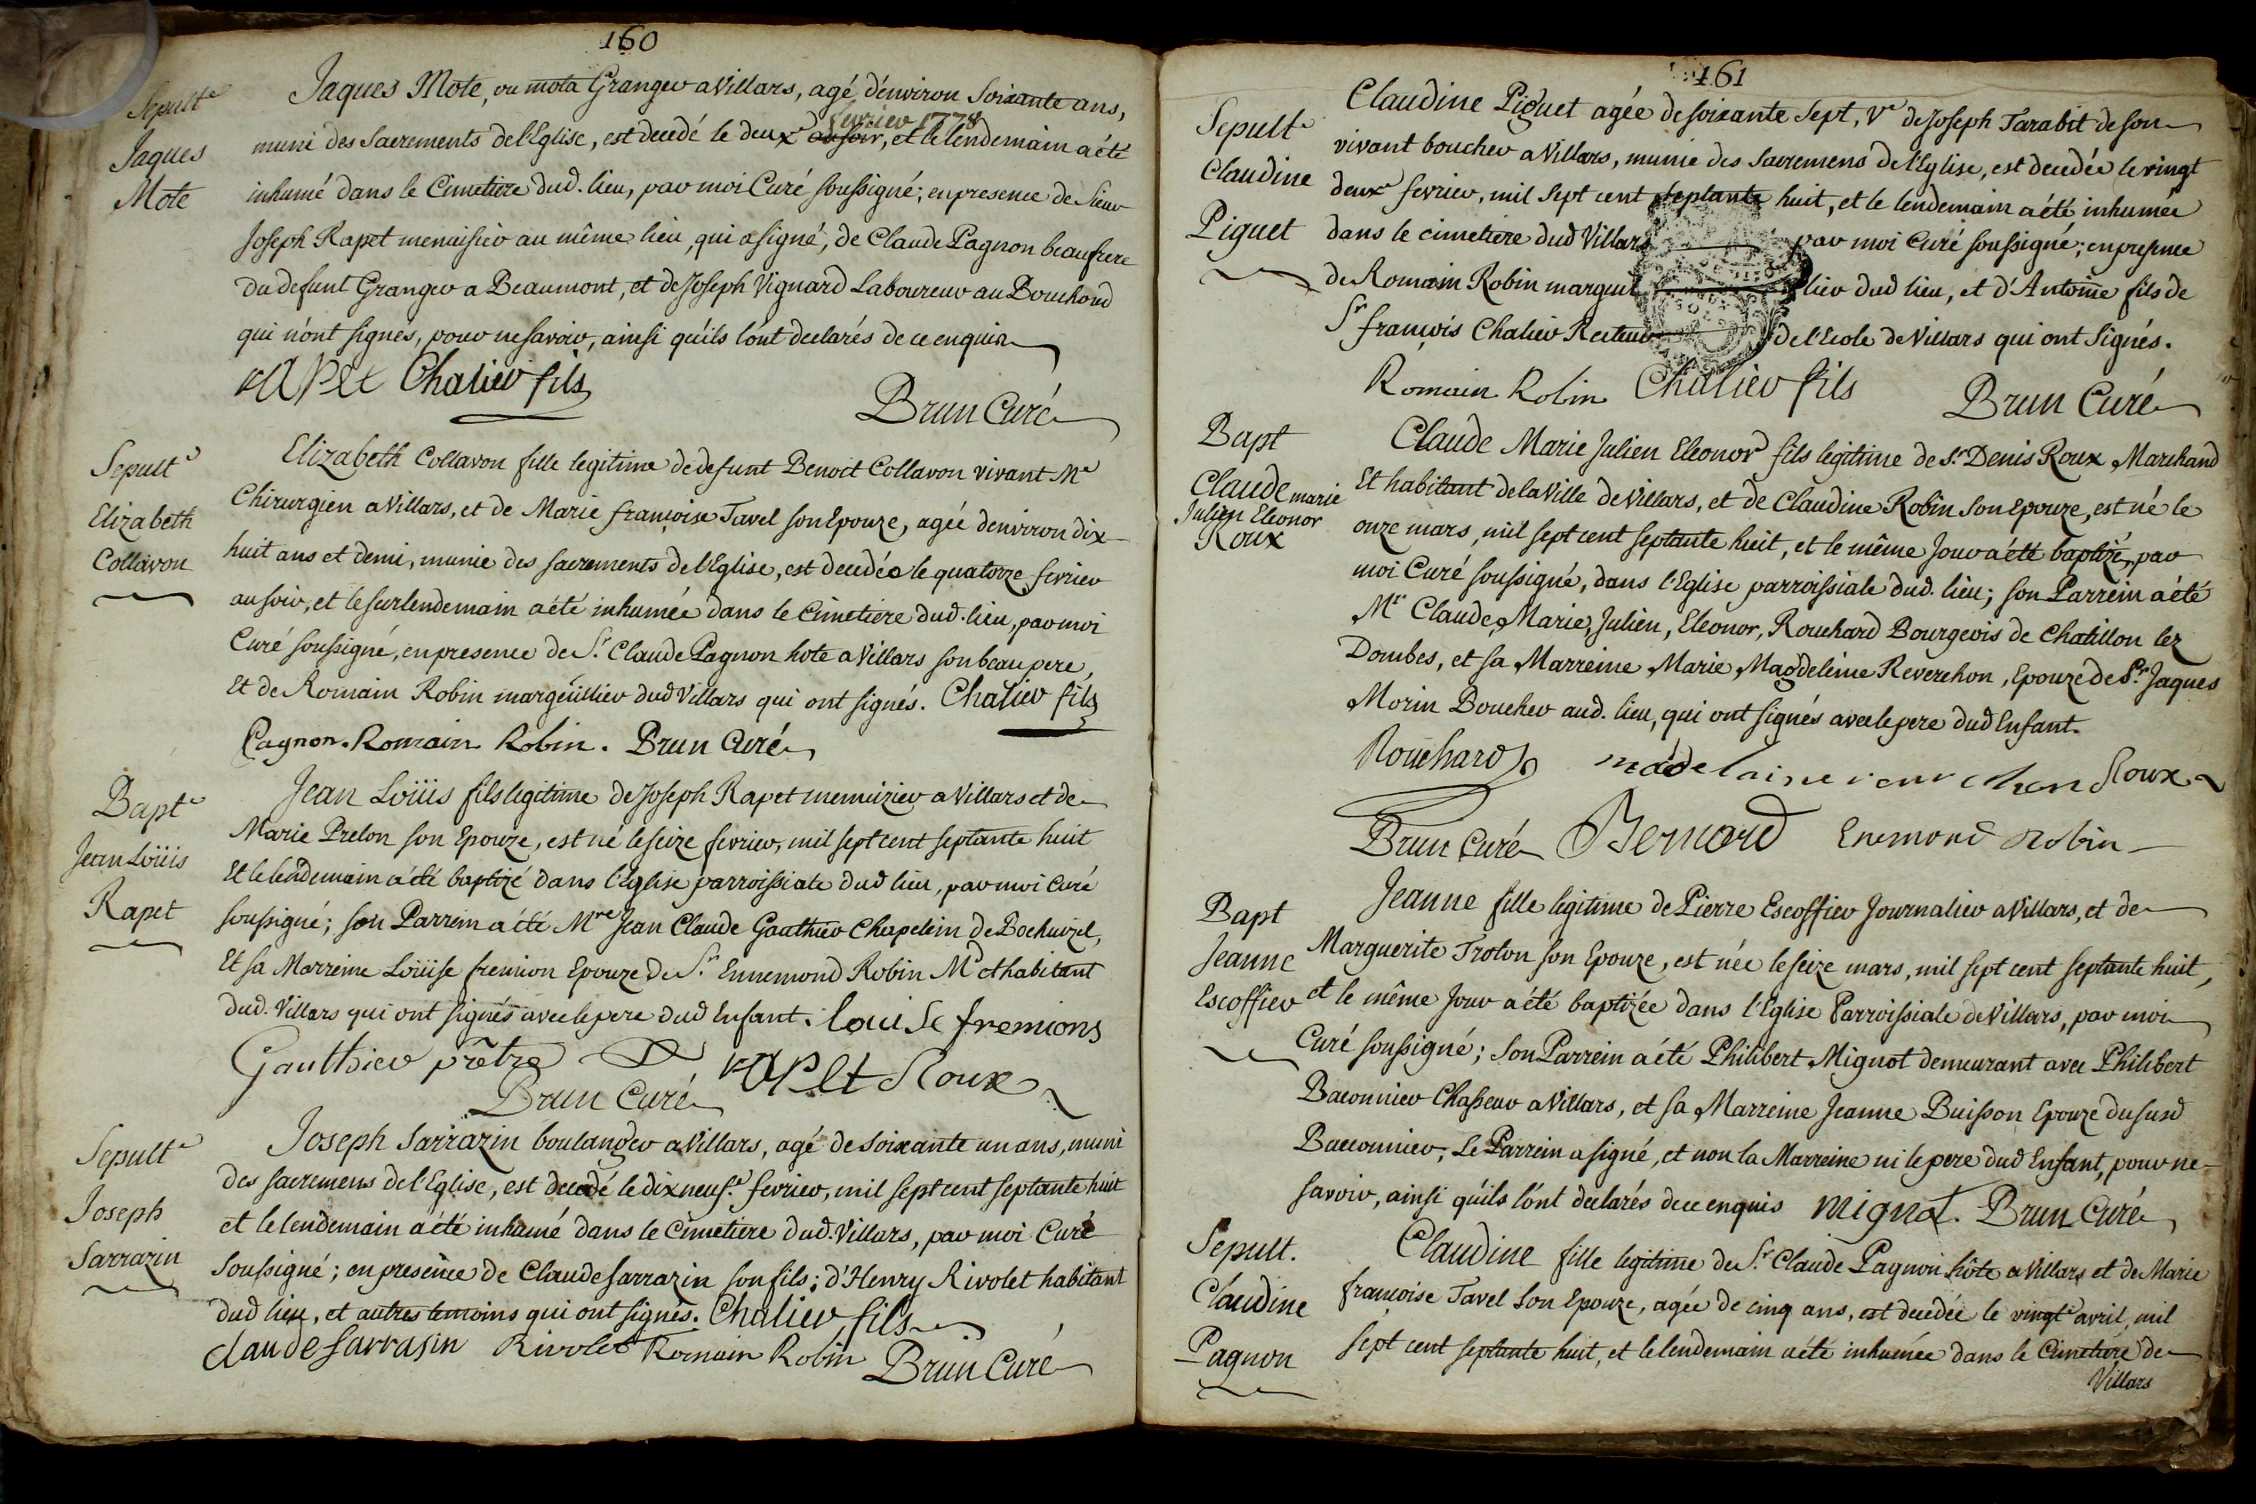 160
Sepult.e
Jaques
Mote
Jaques Mote, ou mota Granger a Villars, agé d'environ Soixante ans,
fevrier 1778
muni des Sacrements de l'Eglise, est decedé le deux au soir, et le lendemain a été
inhumé dans le Cimetiere dud. lieu, par moi Curé soussigné; en presence de Sieur
Joseph Rapet menuisier au même lieu, qui a signé, de Claude Pagnon beaufrere
du defunt Granger a Beaumont, et de Joseph Vignard Laboureur au Bouchard
qui n'ont signes, pour ne savoir, ainsi qu'ils l'ont declarés de ce enquis
rapet Chalier fils
Brun Curé
Sepult.e
Elizabeth
Collavon
Elizabeth Collavon fille legitime de defunt Benoit Collavon vivant M.e
Chirurgien a Villars, et de Marie françoise Tavel son Epouze, agée d'environ dix
huit ans et demi, munie des sacrements de l'Eglise, est decedée le quatorze fevrier
au soir, et le surlendemain a été inhumée dans le Cimetiere dud. lieu, par moi
Curé soussigné, en presence de S.r Claude Pagnon hote a Villars son beau pere,
Et de Romain Robin margüillier dud Villars qui ont signés. Chalier fils
Pagnon. Romain Robin. Brun Curé
Bapt.e
Jean Loüis
Rapet
Jean Loüis fils legitime de Joseph Rapet menuizier a Villars et de
Marie Prelon son Epouze, est né le seize fevrier, mil sept cent septante huit
Et le lendemain a été baptizé dans l'Eglise parroissiale dud lieu, par moi Curé
soussigné; son Parrein a été M.re Jean Claude Gauthier Chapelein de Bochuizel,
Et sa Marreine Loüise fremion Epouze de S.r Ennemond Robin M.d et habitant
dud. Villars qui ont signés avec le pere dud Enfant. louise fremions
Gauthier prêtre rapet Roux
Brun Curé
Sepult.e
Joseph
Sarrazin
Joseph Sarrazin boulanger a Villars, agé de soixante un ans, muni
des sacremens de l'Eglise, est decedé le dix neuf.e fevrier, mil sept cent septante huit
et le lendemain a été inhumé dans le Cimetiere dud. Villars, par moi Curé
Soussigné; en presence de Claude sarrazin son fils; d'Henry Rivolet habitant
dud lieu, et autres temoins qui ont signés. Chalier fils
claude sarrasin Rivolet Romain Robin Brun Curé
161
Sepult.e
Claudine
Piguet
Claudine Piguet agée de soixante Sept, V.e de Joseph Tarabit de son
vivant boucher a Villars, munie des sacremens de l'Eglise, est decedée le vingt
deux fevrier, mil sept cent septante huit, et le lendemain a été inhumée
dans le cimetiere dud Villars par moi Curé soussigné; en presence
de Romain Robin marguil lier dud lieu, et d'Antoine fils de
S.r françois Chalier Recteur de l'Ecole de Villars qui ont Signés.
Romain Robin Chalier fils Brun Curé
Bapt
Claude marie
Julien Eleonor
Roux
Claude Marie Julien Eleonor fils legitime de S.r Denis Roux Marchand
Et habitant de la Ville de Villars, et de Claudine Robin son Epouze, est né le
onze mars, mil sept cent septante huit, et le même Jour a été baptizé, par
moi Curé soussigné, dans l'Eglise parroissiale dud. lieu; son Parrein a été
M.r Claude, Marie, Julien, Eleonor, Rouchard Bourgeois de Chatillon lez
Dombes, et sa Marreine Marie Magdeleine Reverchon, Epouze de S.r Jaques
Morin Boucher aud. lieu, qui ont signés avec le pere dud Enfant.
Rouchard madelaine reverchon Roux
Brun Curé Bernard Enemond Robin
Bapt
Jeanne
Escoffier
Jeanne fille legitime de Pierre Escoffier Journalier a Villars, et de
Marguerite Trolon son Epouze, est née le seize mars, mil sept cent septante huit,
et le même Jour a été baptizée dans l'Eglise Parroissiale de Villars, par moi
Curé soussigné; son Parrein a été Philibert Mignot demeurant avec Philibert
Baconnier Chasseur a Villars, et sa Marreine Jeanne Buisson Epouze du susd
Baconnier, Le Parrein a signé, et non la Marreine ni le pere dud Enfant, pour ne
savoir, ainsi qu'ils l'ont declarés de ce enquis mignot. Brun Curé
Sepult.
Claudine
Pagnon
Claudine fille legitime du S.r Claude Pagnon hôte a Villars et de Marie
françoise Tavel son Epouze, agée de cinq ans, est decedée le vingt avril, mil
sept cent septante huit, et le lendemain a été inhumée dans le Cimetiere de
Villars